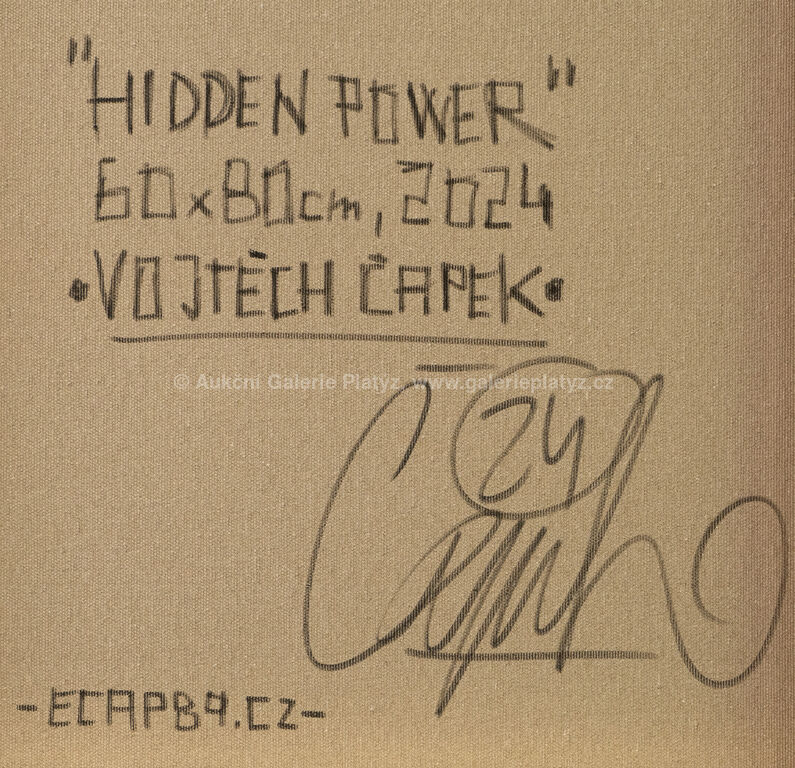 "HIDDEN POWER"
60x80cm, 2024
•VOJTĚCH ČAPEK•
© Aukční Galerie Platýz, www.galerieplatyz.cz
24
-ECAP89.CZ-